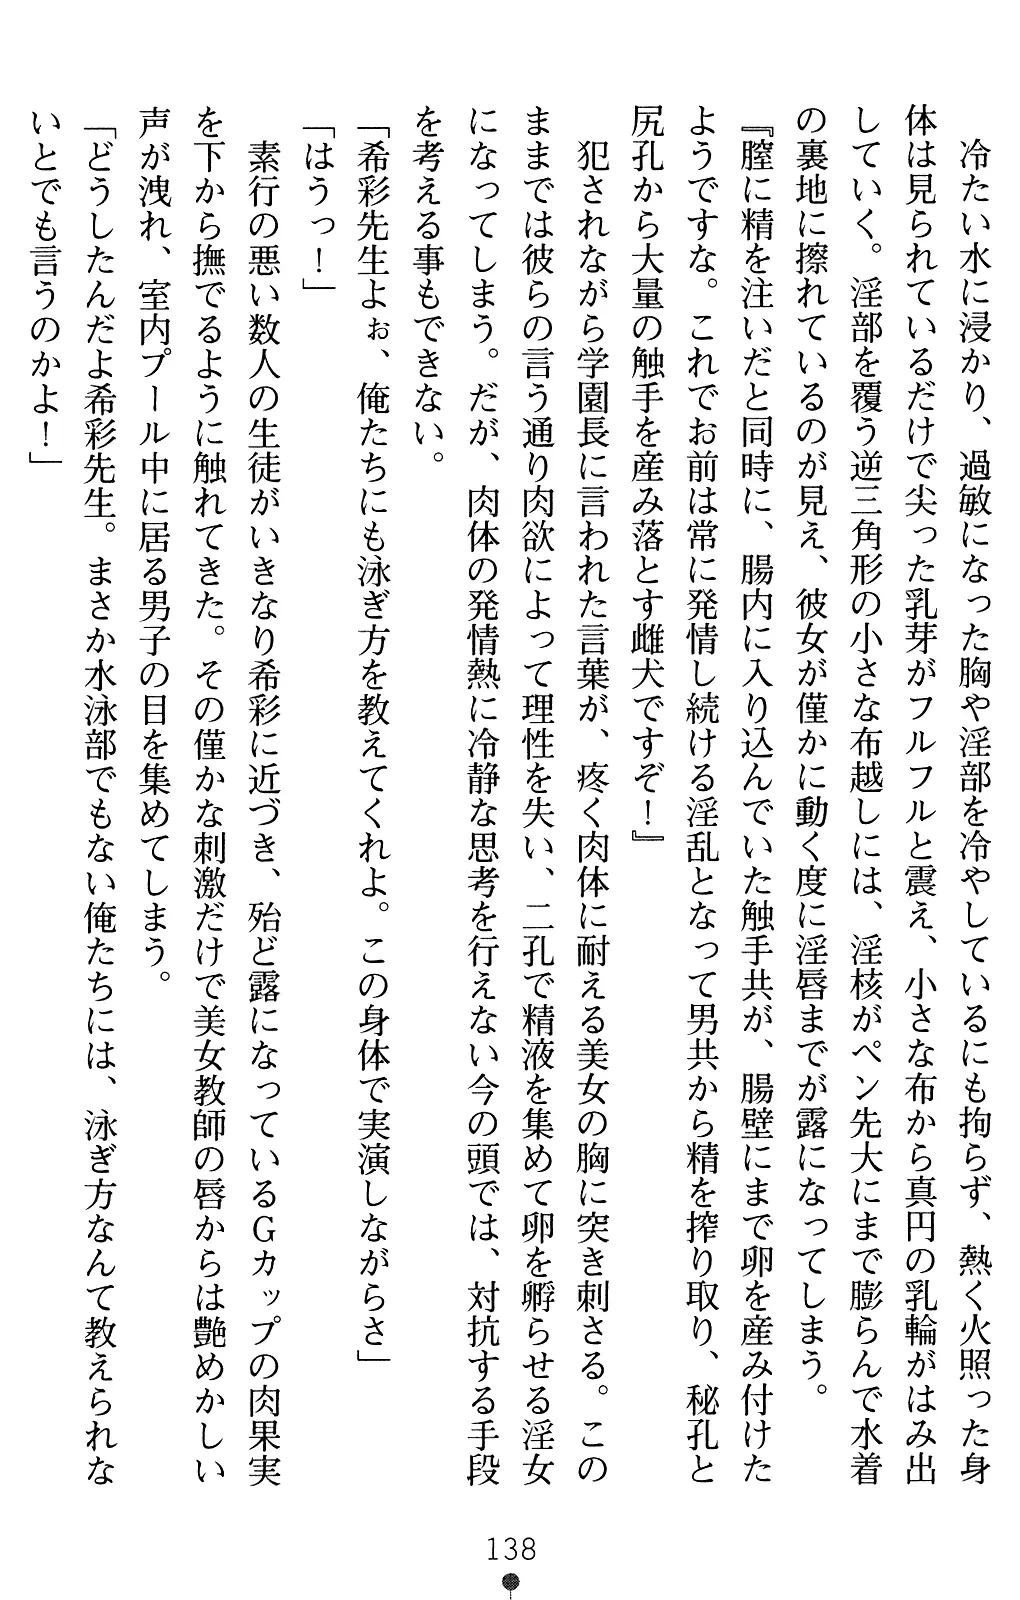 冷たい水に浸かり、過敏になった胸や淫部を冷やしているにも拘らず、熱く火照った身
体は見られているだけで尖った乳芽がフルフルと震え、小さな布から真円の乳輪がはみ出
していく。淫部を覆う逆三角形の小さな布越しには、淫核がペン先大にまで膨らんで水着
の裏地に擦れているのが見え、彼女が僅かに動く度に淫唇までが露になってしまう。
『膣に精を注いだと同時に、腸内に入り込んでいた触手共が、腸壁にまで卵を産み付けた
ようですな。これでお前は常に発情し続ける淫乱となって男共から精を搾り取り、秘孔と
尻孔から大量の触手を産み落とす雌犬ですぞ！』
犯されながら学園長に言われた言葉が、疼く肉体に耐える美女の胸に突き刺さる。この
ままでは彼らの言う通り肉欲によって理性を失い、二孔で精液を集めて卵を孵らせる淫女
になってしまう。だが、肉体の発情熱に冷静な思考を行えない今の頭では、対抗する手段
を考える事もできない。
「希彩先生よぉ、俺たちにも泳ぎ方を教えてくれよ。この身体で実演しながらさ」
「はうっ！」
素行の悪い数人の生徒がいきなり希彩に近づき、殆ど露になっているGカップの肉果実
を下から撫でるように触れてきた。その僅かな刺激だけで美女教師の唇からは艶めかしい
声が洩れ、室内プール中に居る男子の目を集めてしまう。
「どうしたんだよ希彩先生。まさか水泳部でもない俺たちには、泳ぎ方なんて教えられな
いとでも言うのかよ！」
138